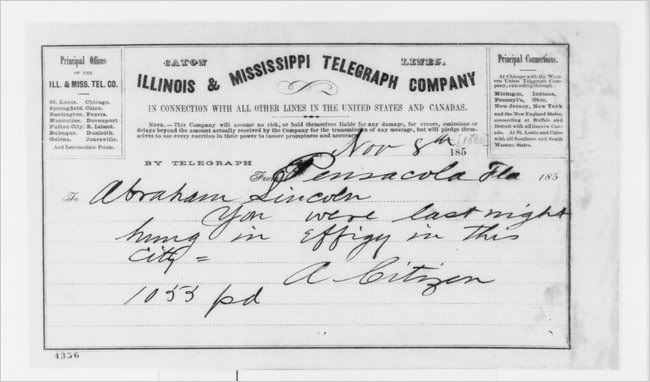 Principal Offices
OF THE
ILL. & MISS. TEL. CO.
St. Louis. Chicago.
Springfield. Cairo.
Burlington. Peoria.
Muscatine. Davenport
Fulton City. R. Island.
Dubuque. Dunleith.
Galena. Janesville.
And Intermediate Points.
CATON LINES.
ILLINOIS & MISSISSIPPI TELEGRAPH COMPANY
IN CONNECTION WITH ALL OTHER LINES IN THE UNITED STATES AND CANADAS.
NOTE.—This Company will assume no risk, or hold themselves liable for any damage, for errors, omissions or
delays beyond the amount actually received by the Company for the transmission of any message, but will pledge them-
selves to use every exertion in their power to insure promptness and accuracy.
Principal Connections.
At Chicago with the Wes-
tern Union Telegraph Com-
pany, extending through
Michigan, Indiana,
Pennsyl'a, Ohio,
New Jersey, New York
and the New England States,
connecting at Buffalo and
Detroit with all lines in Can-
ada. At St. Louis and Cairo
with all Southern and South
Western States.
Nov 8th 185 [1860]
BY TELEGRAPH
From Pensacola Fla 185
To Abraham Lincoln
You were last night
hung in effigy in this
city =
A Citizen
1055 pd
4356